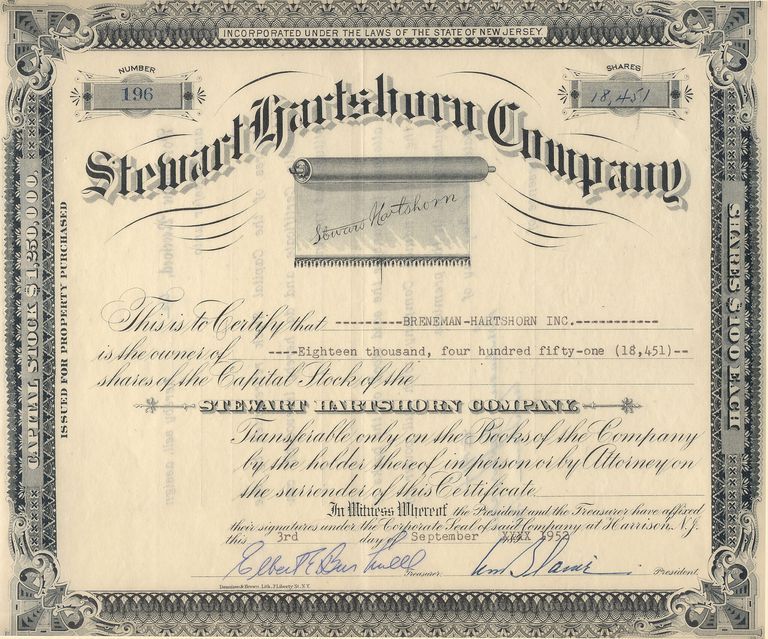 INCORPORATED UNDER THE LAWS OF THE STATE OF NEW JERSEY
NUMBER
196
SHARES
18,451
Stewart Hartshorn Company
Stewart Hartshorn
CAPITAL STOCK $1,250,000.
ISSUED FOR PROPERTY PURCHASED
SHARES $100 EACH
This is to Certify that ---------BRENEMAN-HARTSHORN INC.-----------
is the owner of ----Eighteen thousand, four hundred fifty-one (18,451)--
shares of the Capital Stock of the
STEWART HARTSHORN COMPANY
Transferable only on the Books of the Company
by the holder thereof in person or by Attorney on
the surrender of this Certificate.
In Witness Whereof the President and the Treasurer have affixed
their signatures under the Corporate Seal of said Company at Harrison, N.J.
this 3rd day of September XXXX 1952
Treasurer. President.